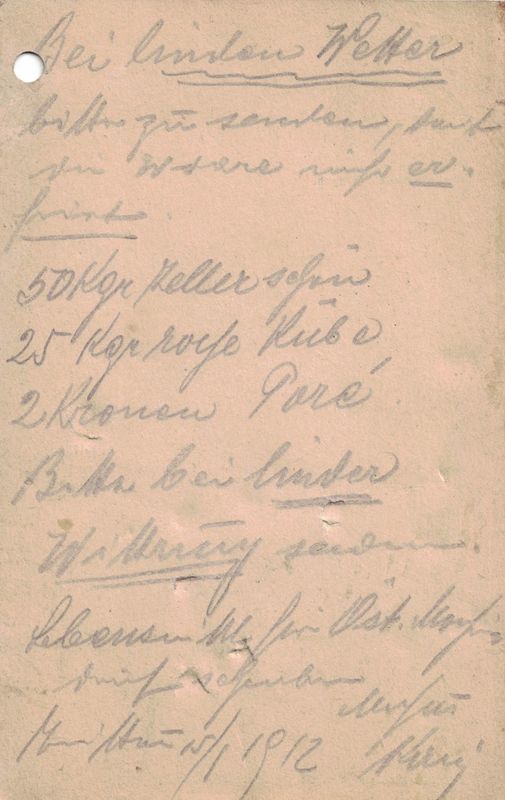 Bei linden Wetter
bitte zu senden, damit
die Waare nicht er-
friert.
50 Kgr Zeller schön
25 Kgr rothe Rübe
2 Kronen Poré.
Bitte bei linder
Witterung senden.
Lebensmitt. für Öst.
drauf schreiben
15/1 1912